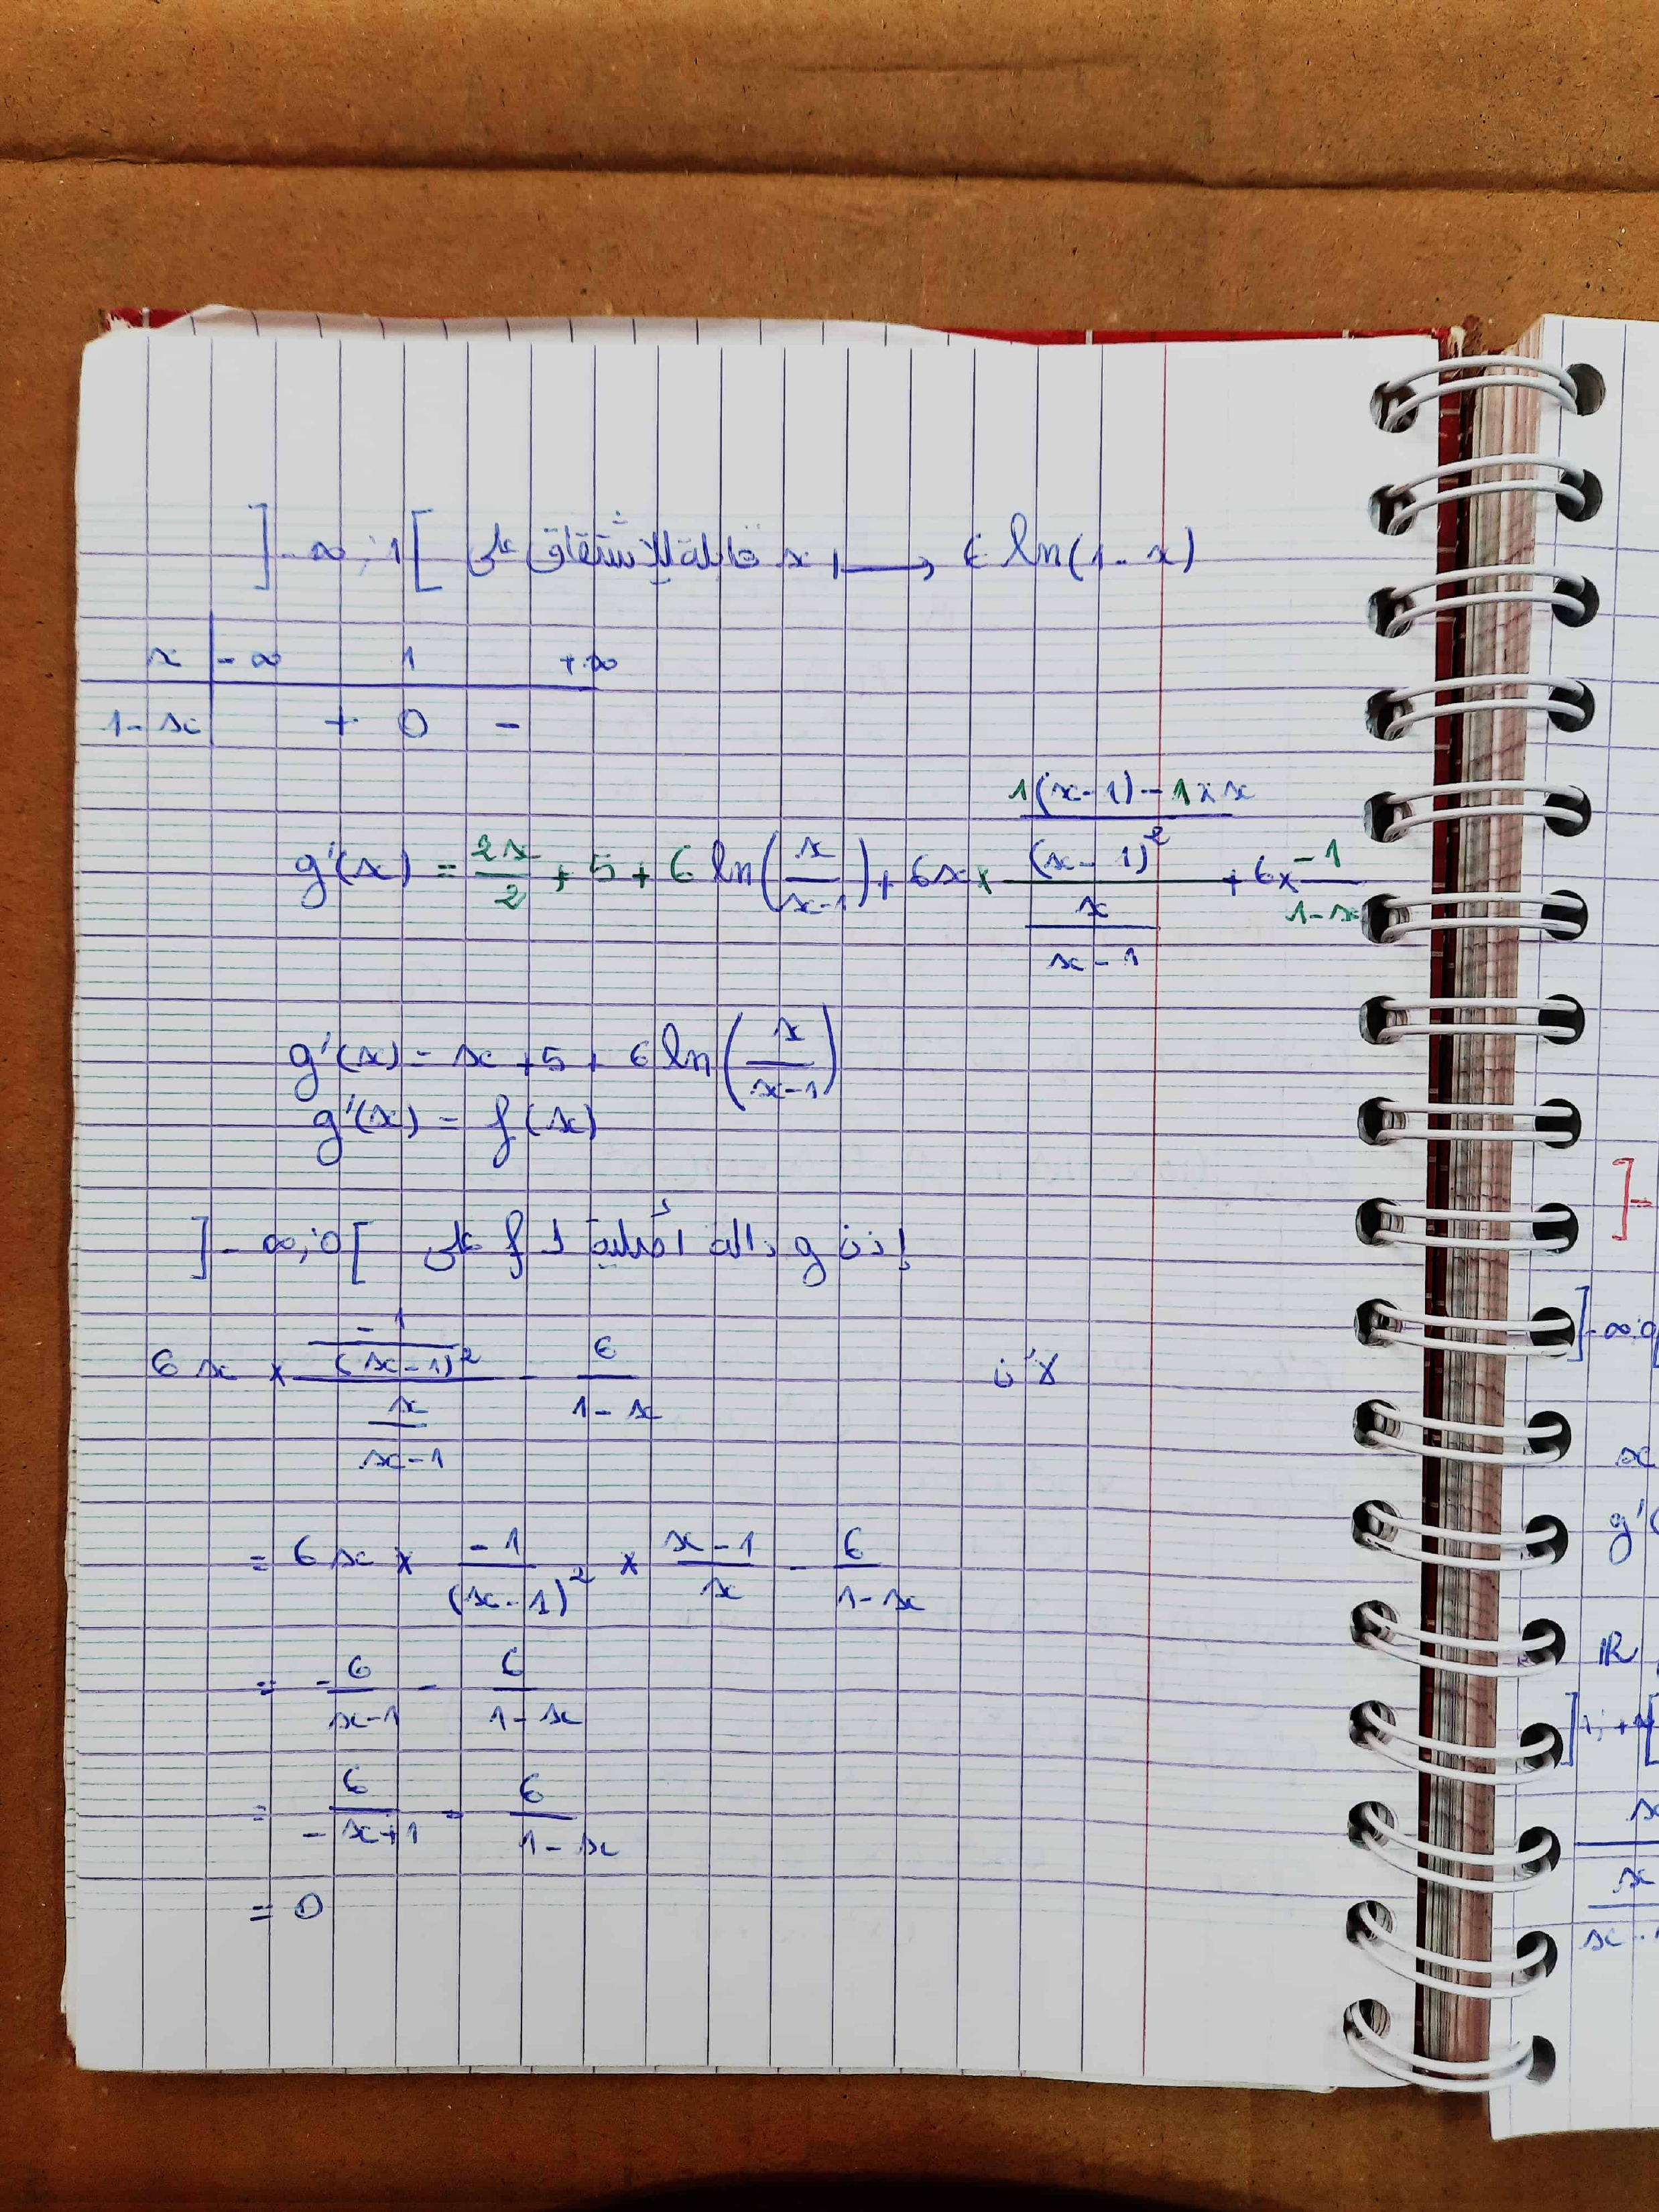 x ⟼ 6 ln(1-x) قابلة للإشتقاق على ]-∞;1[
x | -∞ 1 +∞
1-x | + 0 -
g'(x) = 2x/2 + 5 + 6 ln(x/(x-1)) + 6x × ((1(x-1) - 1×x)/(x-1)²)/(x/(x-1)) + 6 × -1/(1-x)
g'(x) = x + 5 + 6 ln(x/(x-1))
g'(x) = f(x)
إذن g دالة أصلية لـ f على ]-∞;0[
لأن 6x × (-1/(x-1)²)/(x/(x-1)) - 6/(1-x)
= 6x × -1/(x-1)² × (x-1)/x - 6/(1-x)
= -6/(x-1) - 6/(1-x)
= 6/(-x+1) - 6/(1-x)
= 0
]-
]-∞;0
x
g'(
IR
]1;+∞[
x
x
x-1